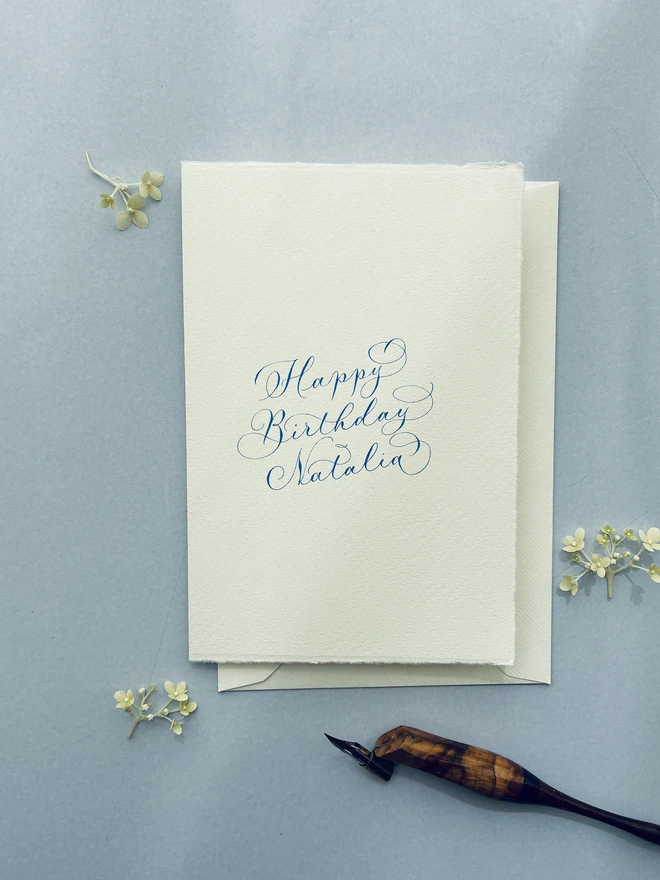 Happy
Birthday
Natalia